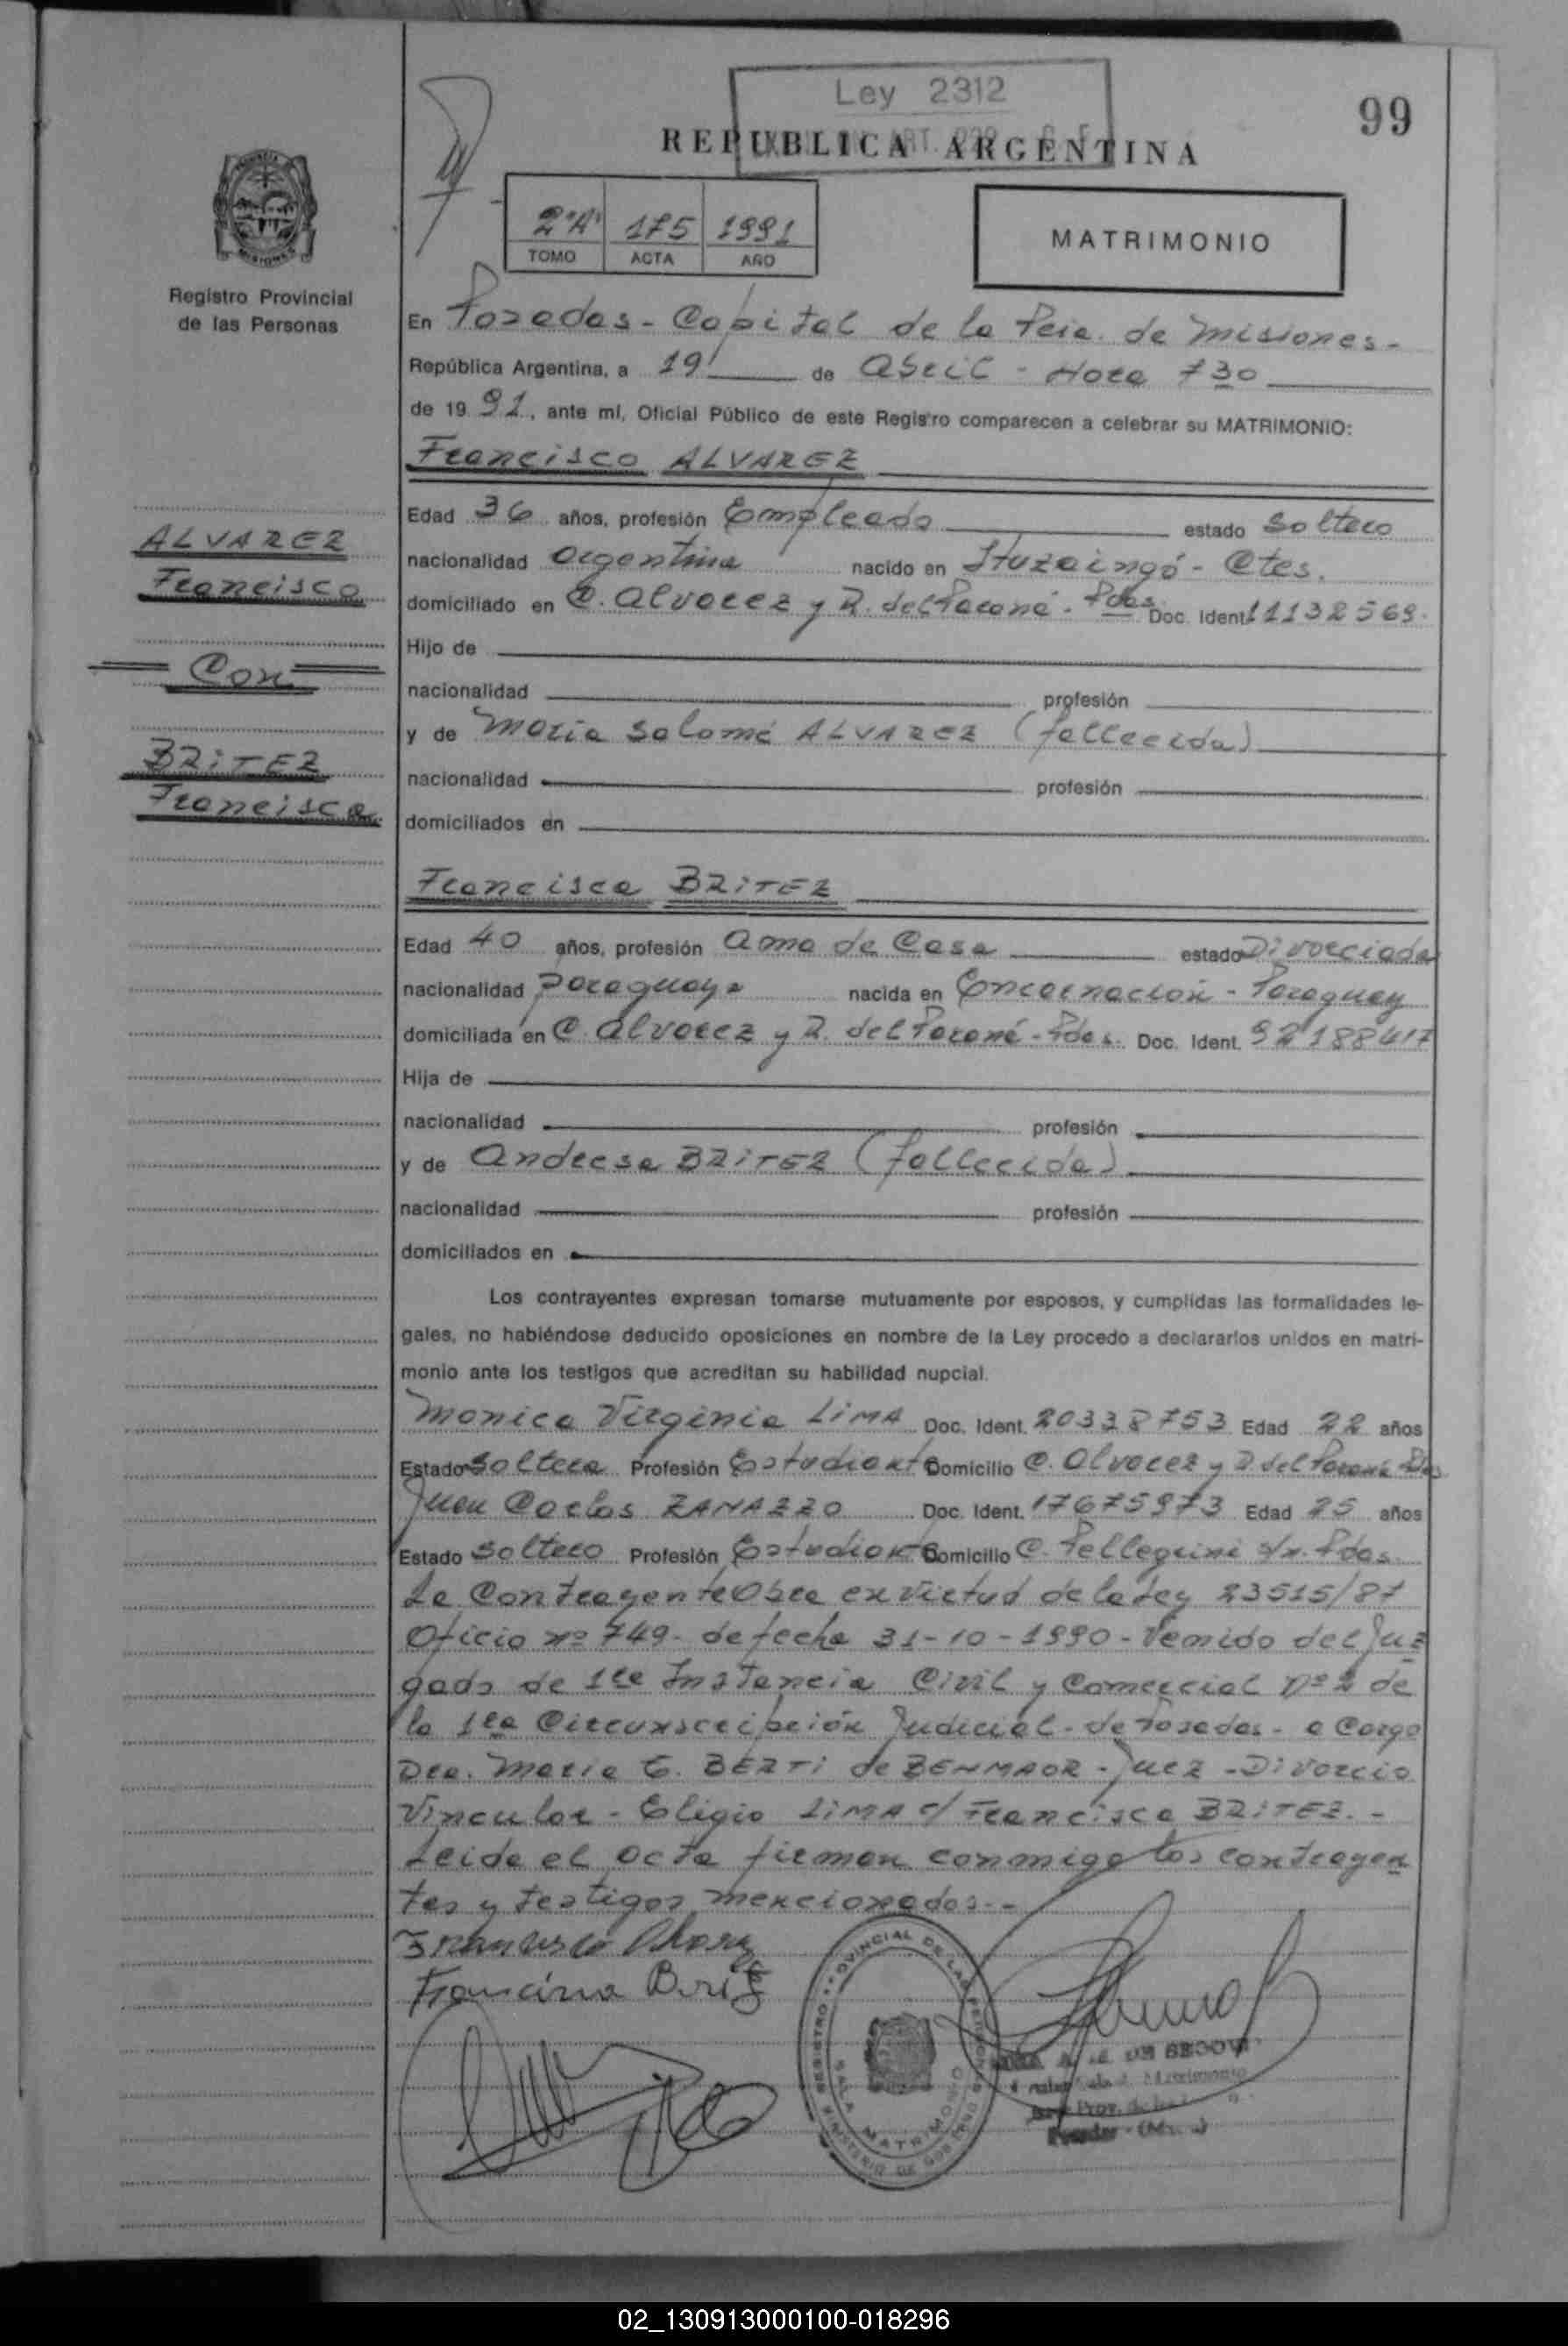 Ley 2312
99
REPUBLICA ARGENTINA
2º"A" 175 1991
TOMO ACTA AÑO
MATRIMONIO
Registro Provincial
de las Personas
En Posadas - Capital de la Pcia. de Misiones -
República Argentina, a 19 de Abril - Hora 7 30
de 19 91, ante mí, Oficial Público de este Registro comparecen a celebrar su MATRIMONIO:
Francisco ALVAREZ
Edad 36 años, profesión Empleado estado Soltero
nacionalidad Argentina nacido en Ituzaingó - Ctes.
domiciliado en C. Alvarez y R. del Paraná - Pdas. Doc. Ident. 11132569.
Hijo de
nacionalidad profesión
y de Maria Salomé ALVAREZ (fallecida)
nacionalidad profesión
domiciliados en
ALVAREZ
Francisco
Con
BRITEZ
Francisca
Francisca BRITEZ
Edad 40 años, profesión Ama de Casa estado Divorciada
nacionalidad Paraguaya nacida en Encarnación - Paraguay
domiciliada en C. Alvarez y R. del Paraná - Pdas. Doc. Ident. 92188417
Hija de
nacionalidad profesión
y de Andresa BRITEZ (fallecida)
nacionalidad profesión
domiciliados en
Los contrayentes expresan tomarse mutuamente por esposos, y cumplidas las formalidades le-
gales, no habiéndose deducido oposiciones en nombre de la Ley procedo a declararlos unidos en matri-
monio ante los testigos que acreditan su habilidad nupcial.
Monica Virginia LIMA Doc. Ident. 20338753 Edad 22 años
Estado Soltera Profesión Estudiante Domicilio C. Alvarez y R. del Paraná Pdas
Juan Carlos ZANAZZO Doc. Ident. 17675973 Edad 25 años
Estado Soltero Profesión Estudiante Domicilio C. Pellegrini s/n. Pdas.
La Contrayente Obra en Virtud de la Ley 23515/87
Oficio nº 749 - de fecha 31-10-1990 - Venido del Juz
gado de 1ra Instancia Civil y Comercial Nº 2 de
la 1ra Circunscripción Judicial - de Posadas - a Cargo
Dra. Maria E. BERTI de BENMAOR - Juez - Divorcio
Vincular - Eligio LIMA c/ Francisca BRITEZ. -
Leida el acta firman conmigo los contrayen
tes y testigos mencionados. -
REGISTRO PROVINCIAL DE LAS PERSONAS
SALA MATRIMONIO
MINISTERIO DE GOBIERNO
02_130913000100-018296